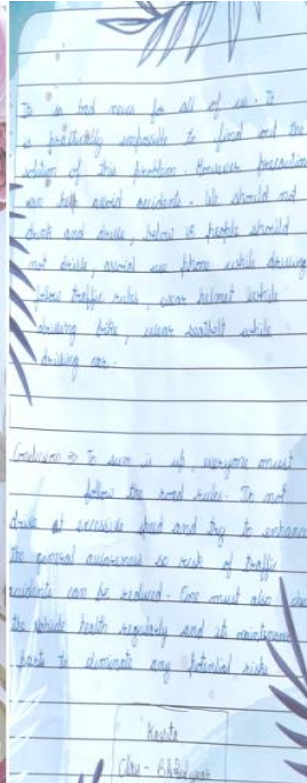 It is bad news for all of us. It
is practically impossible to find out the
solution of this problem. However precaution
can help avoid accidents. We should not
drink and drive, below 18 people should
not drive, avoid use phone while driving
follow traffic rules, wear helmet while
driving bike, wear seatbelt while
driving car.
Conclusion ⇒ To sum is up, everyone must
follow the road rules. Do not
drive at excessive speed and try to enhance
the general awareness so risk of traffic
accidents can be reduced. One must also
the vehicle health regularly and it maintenance
parts to eliminate any potential risk
Class - BA 2nd year